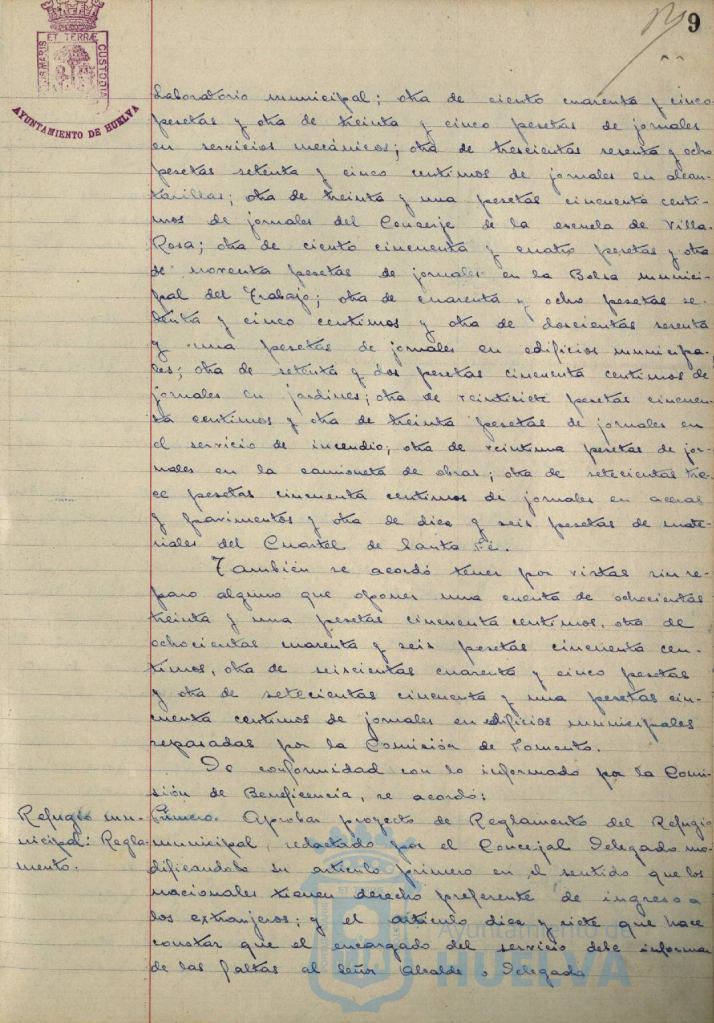 9
PORTUS MARIS ET TERRÆ CUSTODIA
AYUNTAMIENTO DE HUELVA
Laboratorio municipal; otra de ciento cuarenta y cinco
pesetas y otra de treinta y cinco pesetas de jornales
en servicios mecánicos; otra de trescientas sesenta y ocho
pesetas setenta y cinco centimos de jornales en alcan-
tarillas; otra de treinta y una pesetas cincuenta centi-
mos de jornales del Conserje de la escuela de Villa
Rosa; otra de ciento cincuenta y cuatro pesetas y otra
de noventa pesetas de jornales en la Bolsa munici-
pal del Trabajo; otra de cuarenta y ocho pesetas se-
tenta y cinco centimos y otra de doscientas sesenta
y una pesetas de jornales en edificios municipa-
les; otra de setenta y dos pesetas cincuenta centimos de
jornales en jardines; otra de veintisiete pesetas cincuen-
ta centimos y otra de treinta pesetas de jornales en
el servicio de incendio; otra de veintiuna pesetas de jor-
nales en la camioneta de obras; otra de setecientas tre-
ce pesetas cincuenta centimos de jornales en aceras
y pavimentos y otra de diez y seis pesetas de mate-
riales del Cuartel de Santa Fé.
También se acordó tener por vistas sin re-
paro alguno que oponer una cuenta de ochocientas
treinta y una pesetas cincuenta centimos, otra de
ochocientas cuarenta y seis pesetas cincuenta cen-
timos, otra de seiscientas cuarenta y cinco pesetas
y otra de setecientas cincuenta y una pesetas cin-
cuenta centimos de jornales en edificios municipales
reparadas por la Comisión de Fomento.
De conformidad con lo informado por la Comi-
sión de Beneficencia, se acordó:
Refugio mu-
nicipal: Regla-
mento.
Primero. Aprobar proyecto de Reglamento del Refugio
municipal, redactado por el Concejal Delegado mo-
dificandolo su articulo primero en el sentido que los
nacionales tienen derecho preferente de ingreso a
los extranjeros; y el articulo diez y siete que hace
constar que el encargado del servicio debe informar
de las faltas al Señor Alcalde o Delegado
Ayuntamiento de
HUELVA